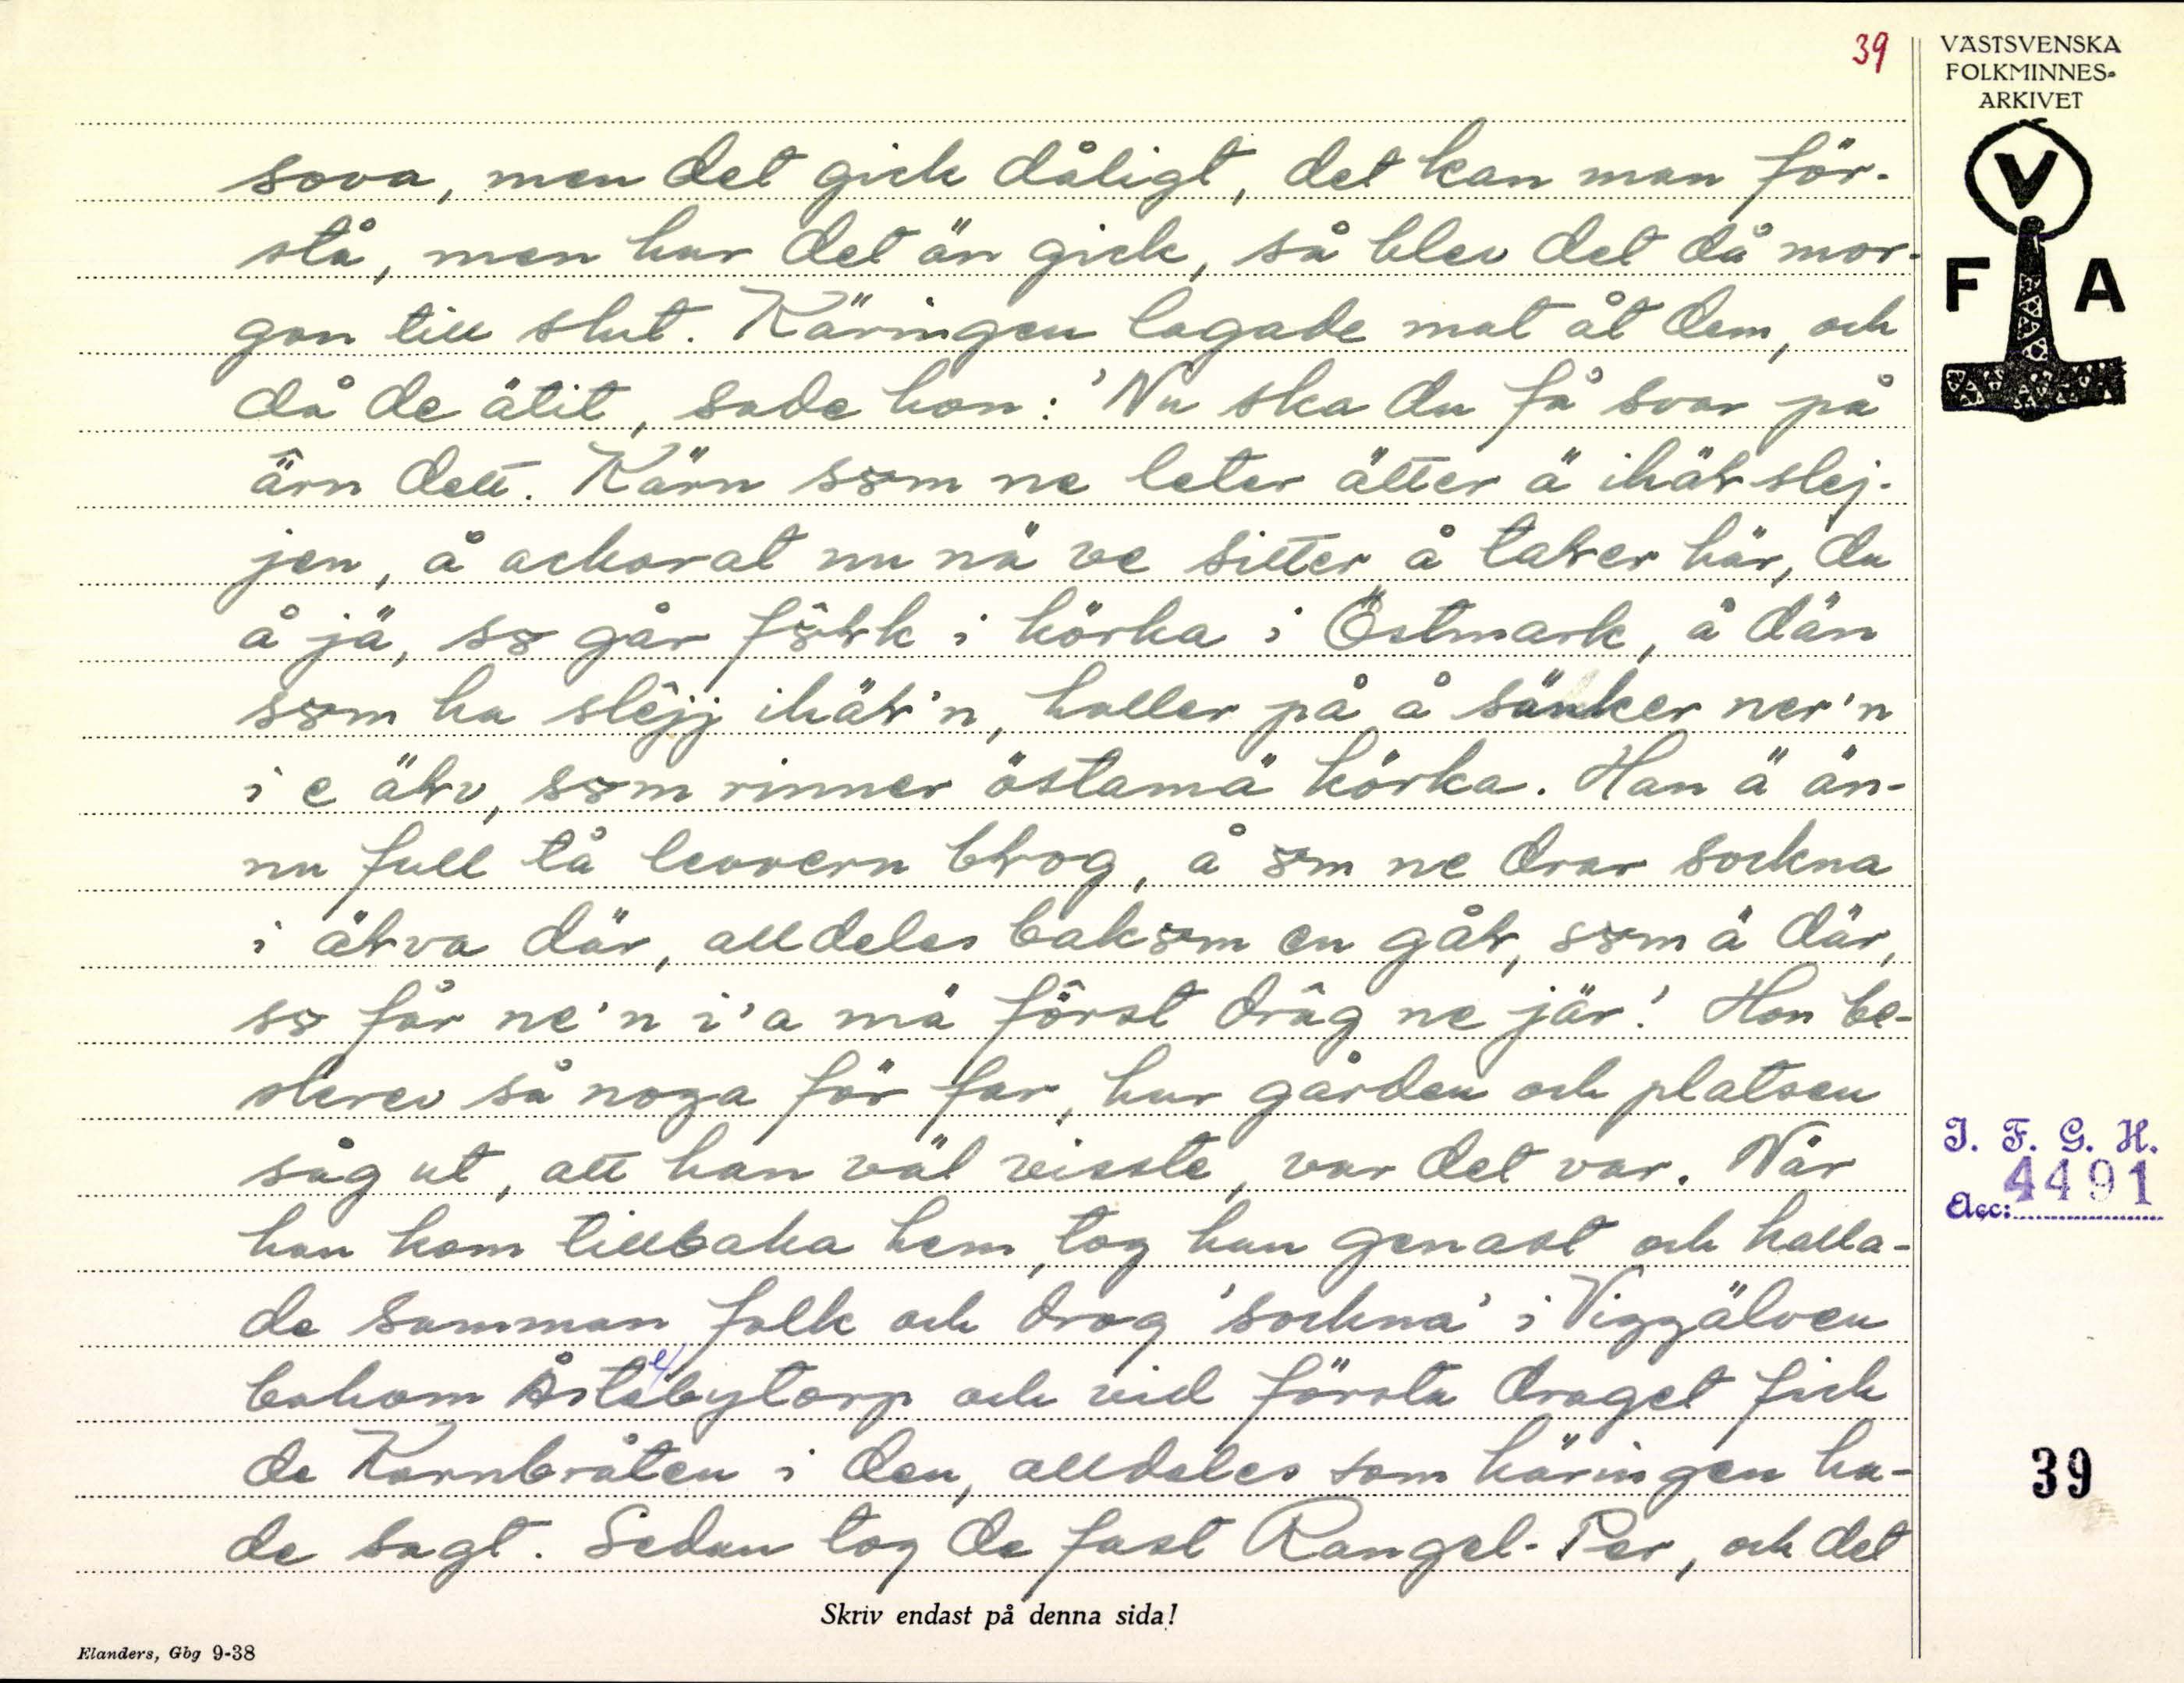 39
VÄSTSVENSKA
FOLKMINNES-
ARKIVET
V
F A
sova, men det gick dåligt, det kan man för-
stå, men hur det än gick, så blev det då mor-
gon till slut. Käringen lagade mat åt dem, och
då de ätit, sade hon: 'Nu ska du få svar på
ärn dett. Kärn søm ne leter ätter ä ihäłslej-
jen, å ackorat nu nä ve sitter å tałer här, du
å jä, sø går føłk i körka i Östmark, å dän
søm ha slêjj ihäł'n, håller på å sänker ner'n
i e äłv, søm rinner östamä körka. Han ä än-
nu full tå levvern błog, å øm ne drar sockna
i äłva där, alldeles bakøm en gåł, søm ä där,
sø får ne'n i'a mä fôrst drâg ne jär.' Hon be-
skrev så noga för far, hur gården och platsen
såg ut, att han väl visste, var det var. När
han kom tillbaka hem, tog han genast och kalla-
de samman folk och drog 'sockna' i Viggälven
bakom Åstebytorp och vid första draget fick
de Kornbråten i den, alldeles som käringen ha-
de sagt. Sedan tog de fast Rangel-Per, och det
I. F. G. H.
Acc: 4491
39
Skriv endast på denna sida!
Elanders, Gbg 9-38